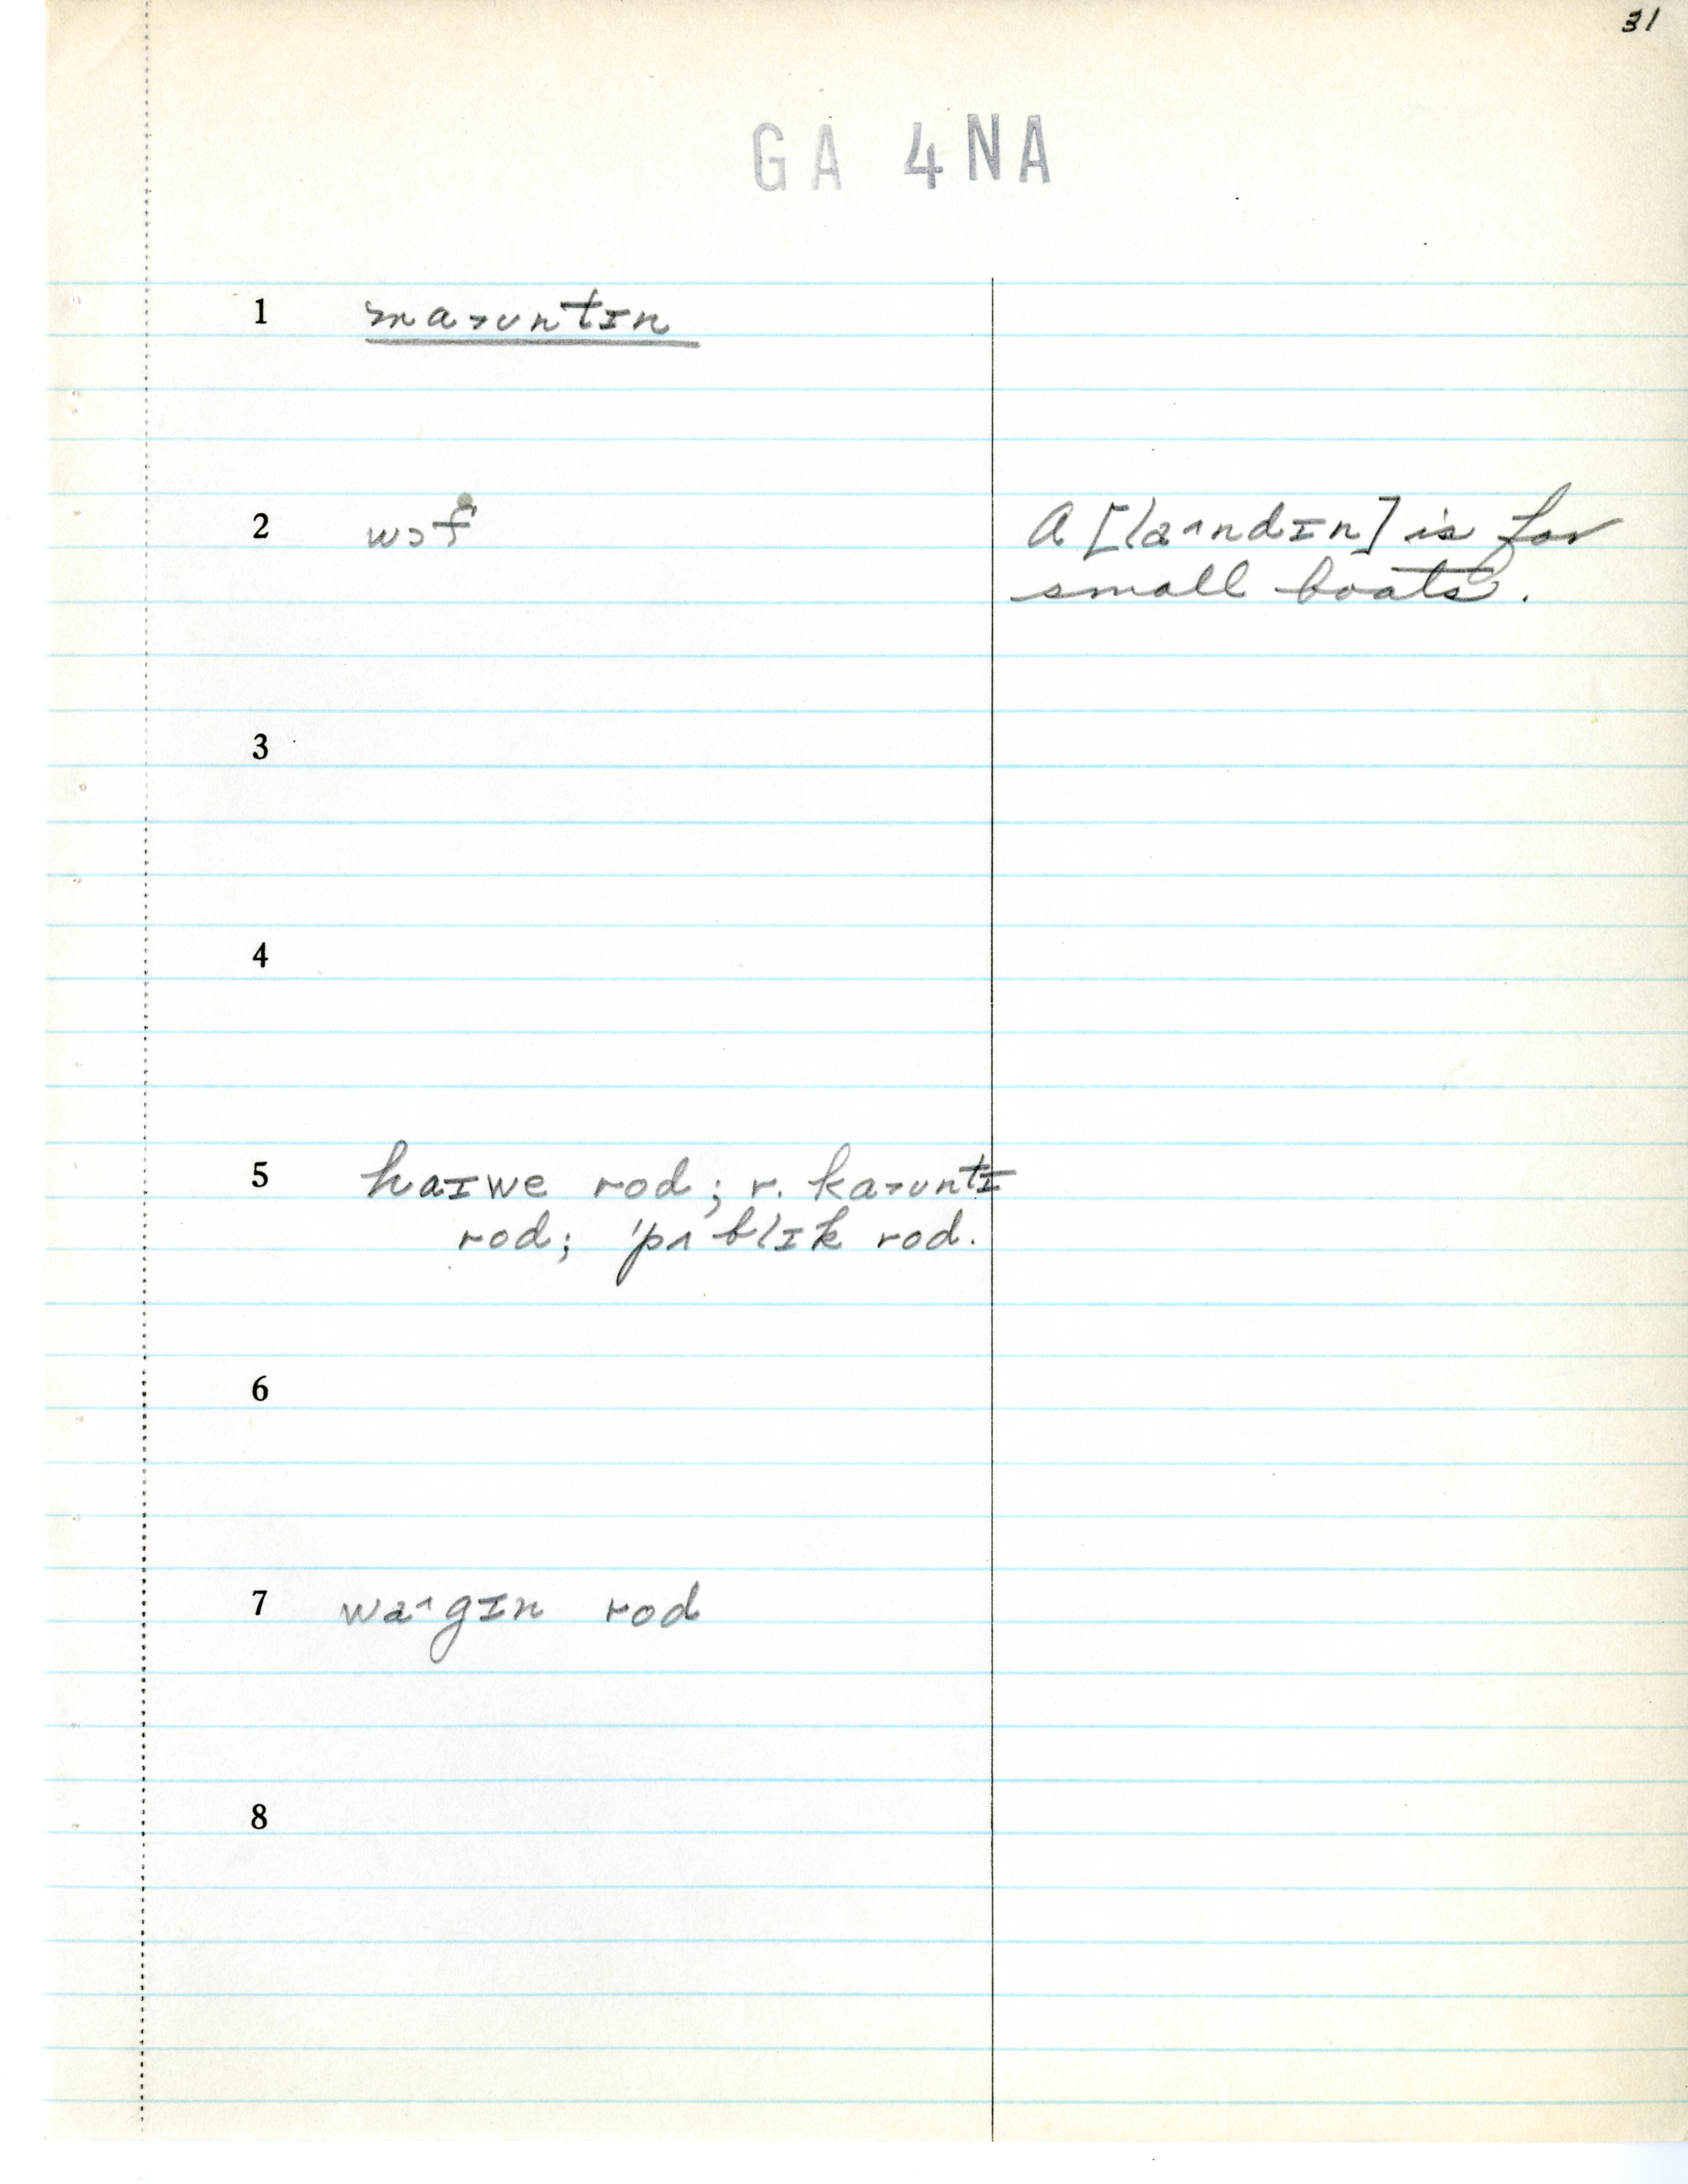 31
GA 4NA
1 ma˃ʊntɪn
2 wɔf A [la˄ndɪn] is for
small boats.
3
4
5 haɪwe rod; r. ka˃ʊntɪ
rod; 'pʌblɪk rod.
6
7 wa˄gɪn rod
8